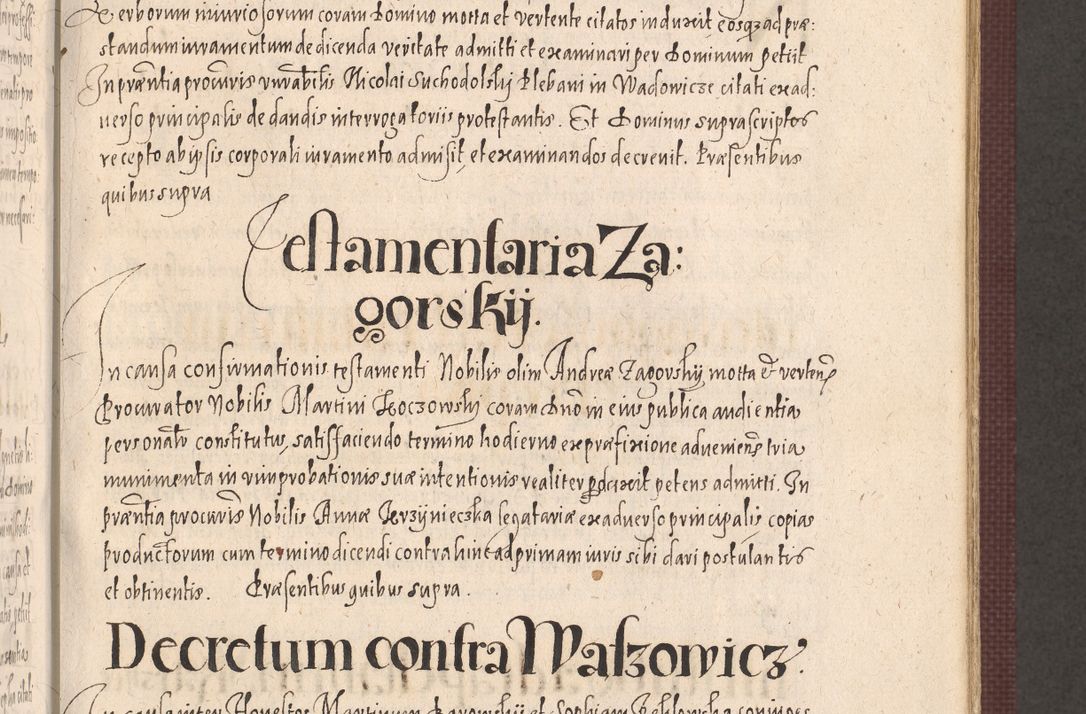 Verborum iniuriosorum coram Domino mota et vertente citatos induxit eosq3 ad præ:
standum iuramentum de dicenda veritate admitti et examinari per Dominum petiit
In præntia procuris vnrabilis Nicolai Suchodolskij Plebani in Wadowicze citati ex ad:
uerso principalis de dandis interrogatoriis protestantis. Et Dominus suprascriptos
recepto ab ipsis corporali iuramento admisit, et examinandos decreuit. Præsentibus
quibus supra
Testamentaria Za:
gorskij.
In causa confirmationis testamenti Nobilis olim Andreæ Zagorskij mota et verten
Procurator Nobilis Martini Koczowskj coram dno in eius publica audientia
personalr constitutus, satisfaciendo termino hodierno ex præfixione adueniens tria
munimenta in vim probationis suæ intentionis realiter pduxit petens admitti. In
præntia procuris Nobilis Annæ Krzijnieczka legatariæ ex aduerso principalis copias
productorum cum termino dicendi contra hinc ad primam iuris sibi dari postulantis
et obtinentis. Præsentibus quibus supra.
Decretum contra Watzowicz.
In causa inter Honestos Martinum et Sophiam coniuges